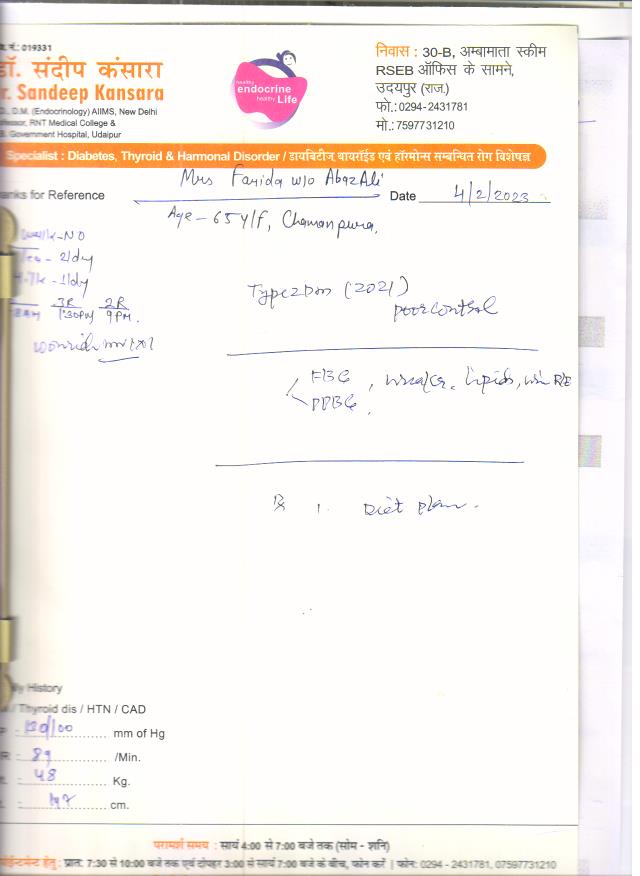 नं.: 019331
डॉ. संदीप कंसारा
r. Sandeep Kansara
D.M. (Endocrinology) AIIMS, New Delhi
fessor, RNT Medical College &
Government Hospital, Udaipur
healthy
endocrine
healthy Life
निवास : 30-B, अम्बामाता स्कीम
RSEB ऑफिस के सामने,
उदयपुर (राज.)
फो.: 0294-2431781
मो.: 7597731210
Specialist : Diabetes, Thyroid & Harmonal Disorder / डायबिटीज, थायरॉईड एवं हॉरमोन्स सम्बन्धित रोग विशेषज्ञ
anks for Reference
Mrs Farida w/o AbazAli
Date 4/2/2023
Age - 65 y/f, Chamanpura,
walk - NO
- 2/dy
- 1/dy
3R 2R
8AM 1:30PM 9PM.
Type 2 Dm (2021)
poor control
FBG
PPBG
, lipids, R/E
Rx 1. Diet plan.
y History
/ Thyroid dis / HTN / CAD
130/100 mm of Hg
89 /Min.
48 Kg.
147 cm.
परामर्श समय : सायं 4:00 से 7:00 बजे तक (सोम - शनि)
हेतु : प्रात: 7:30 से 10:00 बजे तक एवं दोपहर 3:00 से सायं 7:00 बजे के बीच, फोन करें | फोन: 0294 - 2431781, 07597731210